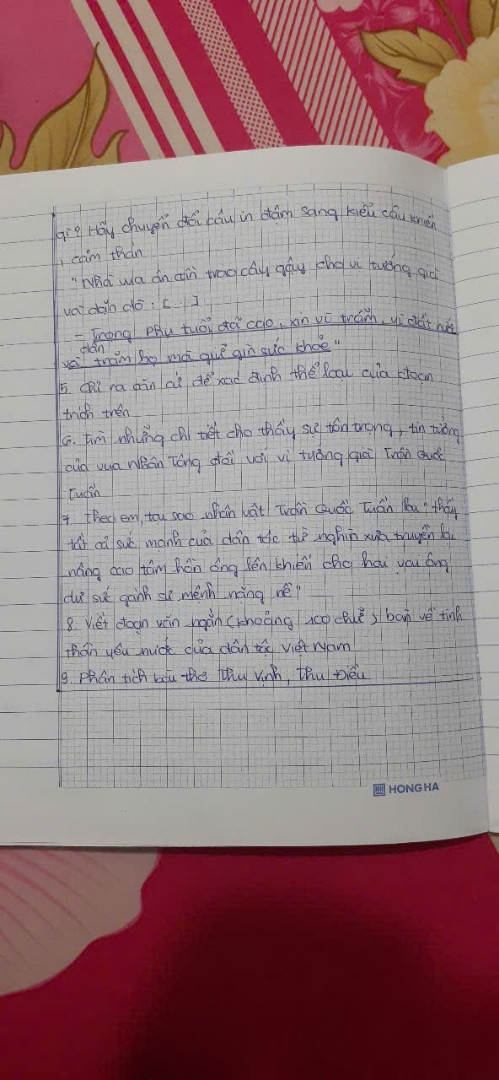 gì? Hãy chuyển đổi câu in đậm sang kiểu câu khiến
, cảm thán
"Nhà vua ân cần trao cây gậy cho vị tướng già
và dặn dò: [...]
- Trọng phụ tuổi đã cao, xin vì trẫm, vì đất nước
dân
và trăm họ mà giữ gìn sức khỏe"
5. Chỉ ra căn cứ để xác định thể loại của đoạn
trích trên
6. Tìm những chi tiết cho thấy sự tôn trọng, tin tưởng
của vua Nhân Tông đối với vị tướng già Trần Quốc
Tuấn
7. Theo em, tại sao nhân vật Trần Quốc Tuấn lại "thấy
tất cả sức mạnh của dân tộc từ nghìn xưa truyền lại
nâng cao tâm hồn ông lên khiến cho hai vai ông
đủ sức gánh sứ mệnh nặng nề"
8. Viết đoạn văn ngắn (khoảng 200 chữ) bàn về tinh
thần yêu nước của dân tộc Việt Nam
9. Phân tích bài thơ Thu Vịnh, Thu Điếu
HONG HA